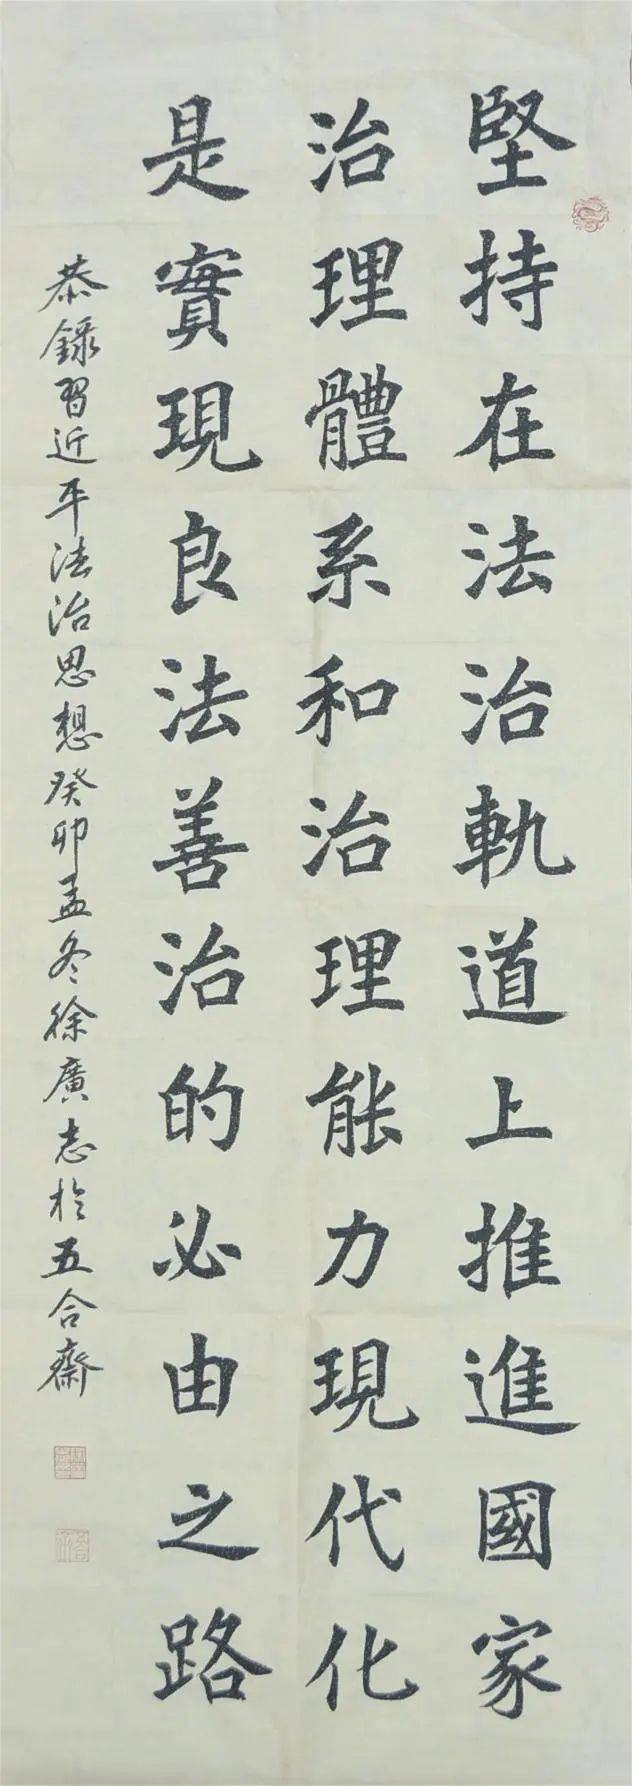 堅持在法治軌道上推進國家
治理體系和治理能力現代化
是實現良法善治的必由之路
恭錄習近平法治思想癸卯孟冬徐廣志於五合齋